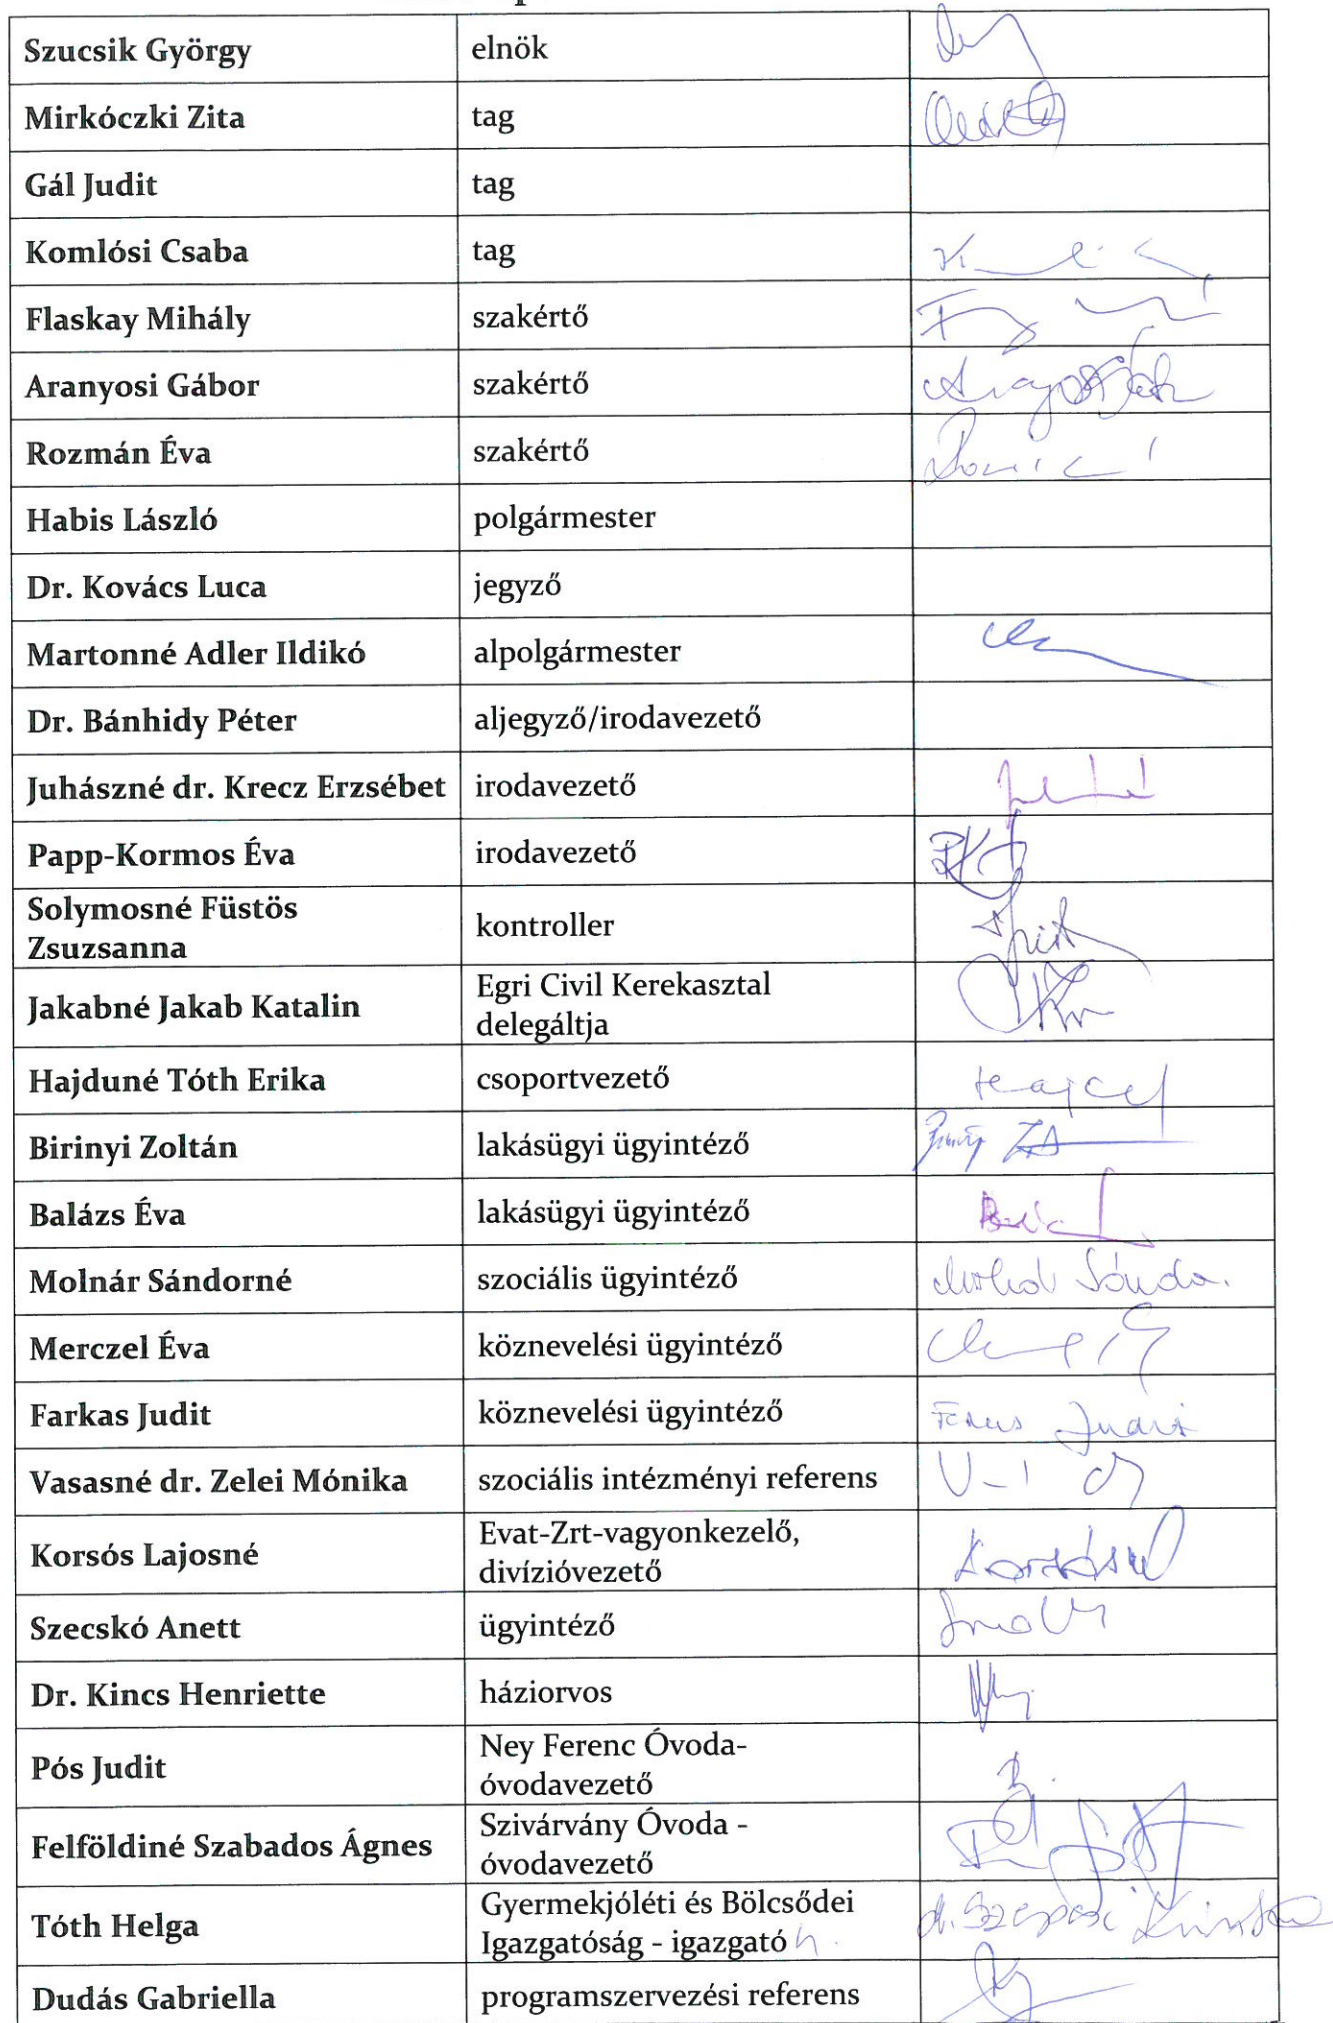 Szucsik György elnök
Mirkóczki Zita tag
Gál Judit tag
Komlósi Csaba tag
Flaskay Mihály szakértő
Aranyosi Gábor szakértő
Rozmán Éva szakértő
Habis László polgármester
Dr. Kovács Luca jegyző
Martonné Adler Ildikó alpolgármester
Dr. Bánhidy Péter aljegyző/irodavezető
Juhászné dr. Krecz Erzsébet irodavezető
Papp-Kormos Éva irodavezető
Solymosné Füstös
Zsuzsanna
kontroller
Jakabné Jakab Katalin
Egri Civil Kerekasztal
delegáltja
Hajduné Tóth Erika csoportvezető
Birinyi Zoltán lakásügyi ügyintéző
Balázs Éva lakásügyi ügyintéző
Molnár Sándorné szociális ügyintéző
Merczel Éva köznevelési ügyintéző
Farkas Judit köznevelési ügyintéző
Vasasné dr. Zelei Mónika szociális intézményi referens
Korsós Lajosné
Evat-Zrt-vagyonkezelő,
divízióvezető
Szecskó Anett ügyintéző
Dr. Kincs Henriette háziorvos
Pós Judit
Ney Ferenc Óvoda-
óvodavezető
Felföldiné Szabados Ágnes
Szivárvány Óvoda -
óvodavezető
Tóth Helga
Gyermekjóléti és Bölcsődei
Igazgatóság - igazgató h.
Dudás Gabriella programszervezési referens